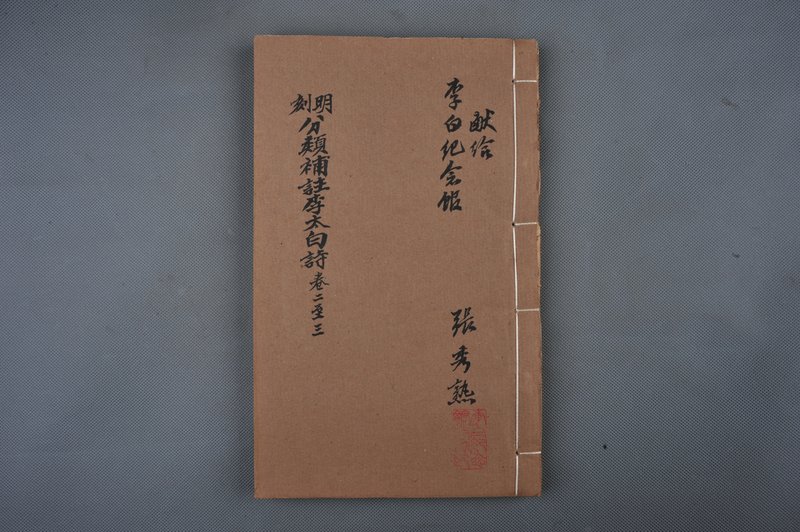 献给
李白纪念馆
張秀熟
明刻
分類補註李太白詩卷二至三